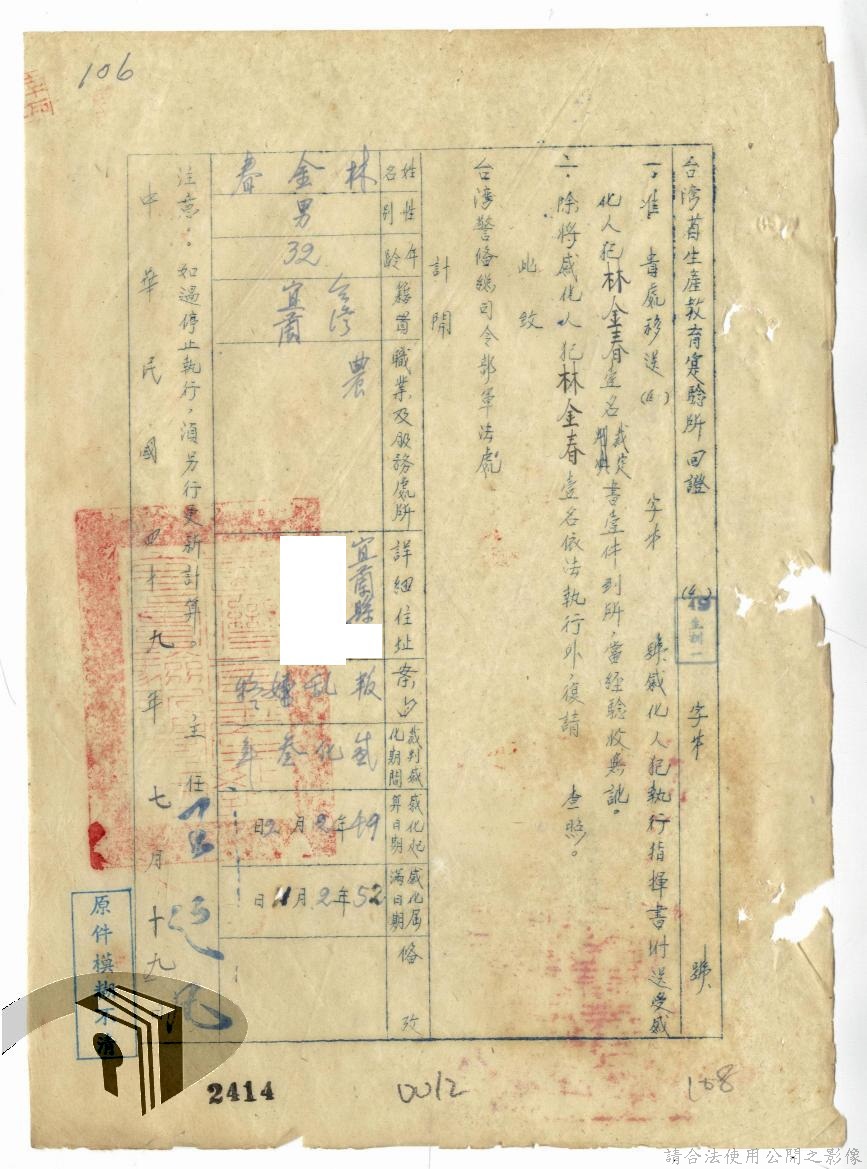 106
台湾省生產教育實驗所回證
(49)
生訓一
字第
號
一、准 貴處移送( )字第 號感化人犯執行指揮書附送受感
化人犯林金春壹名裁定判決書壹件到所,當經驗收無訛。
二、除將感化人犯林金春壹名依法執行外,復請 查照。
此致
台灣警備總司令部軍法處
計開
姓名
性別
年齡
籍貫
職業及服務處所
詳細住址
案由
裁判感化期間
感化起算日期
感化屆滿日期
備攷
林金春
男
32
台湾宜蘭
農
宜蘭縣
叛乱嫌
感化叁年
49年2月2日
52年2月 日
注意:如過停止執行,須另行更新計算。
主任
中華民國四十九年七月十九
原件模糊不清
2414
0012
108
請合法使用公開之影像